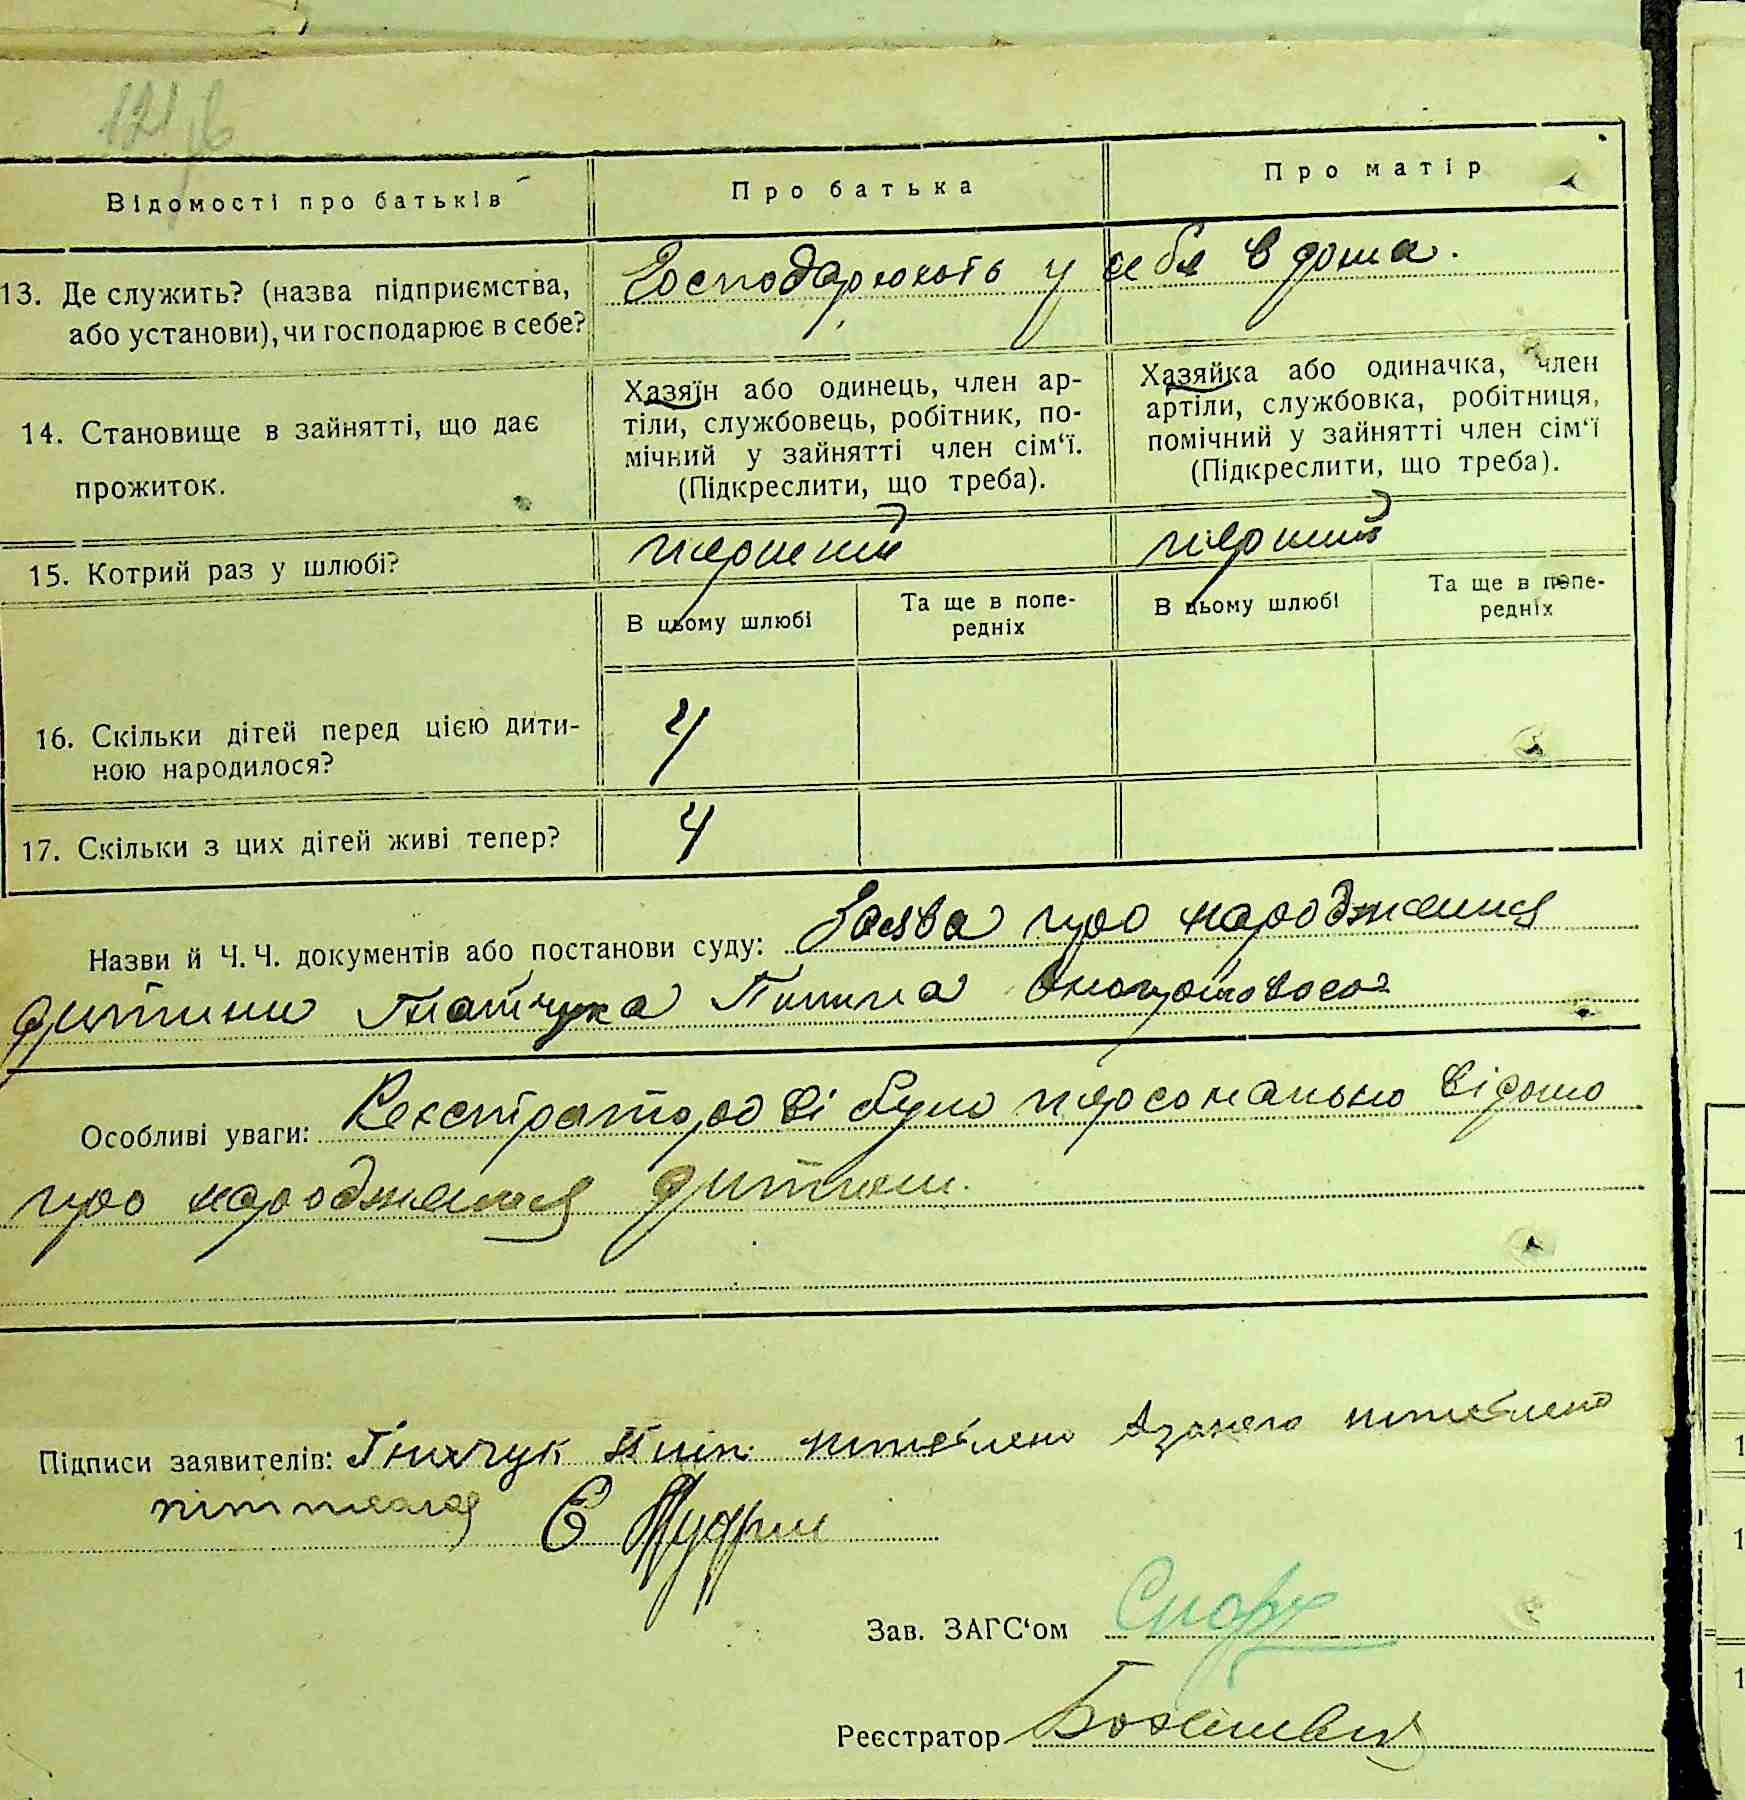 121
Відомості про батьків
Про батька
Про матір
13. Де служить? (назва підприємства,
або установи), чи господарює в себе?
Господарюють у себя в дома.
14. Становище в зайнятті, що дає
прожиток.
Хазяїн або одинець, член ар-
тіли, службовець, робітник, по-
мічний у зайнятті член сім‘ї.
(Підкреслити, що треба).
Хазяйка або одиначка, член
артіли, службовка, робітниця,
помічний у зайнятті член сім‘ї
(Підкреслити, що треба).
15. Котрий раз у шлюбі?
перший
перший
В цьому шлюбі
Та ще в попе-
редніх
В цьому шлюбі
Та ще в попе-
редніх
16. Скільки дітей перед цією дити-
ною народилося?
4
17. Скільки з цих дітей живі тепер?
4
Назви й Ч. Ч. документів або постанови суду: Заява про народження
дитини
Особливі уваги: Реєстраторові було персонально відомо
про народження дитини.
Підписи заявителів:
Є
Зав. ЗАГС‘ом
Реєстратор
1
1
1